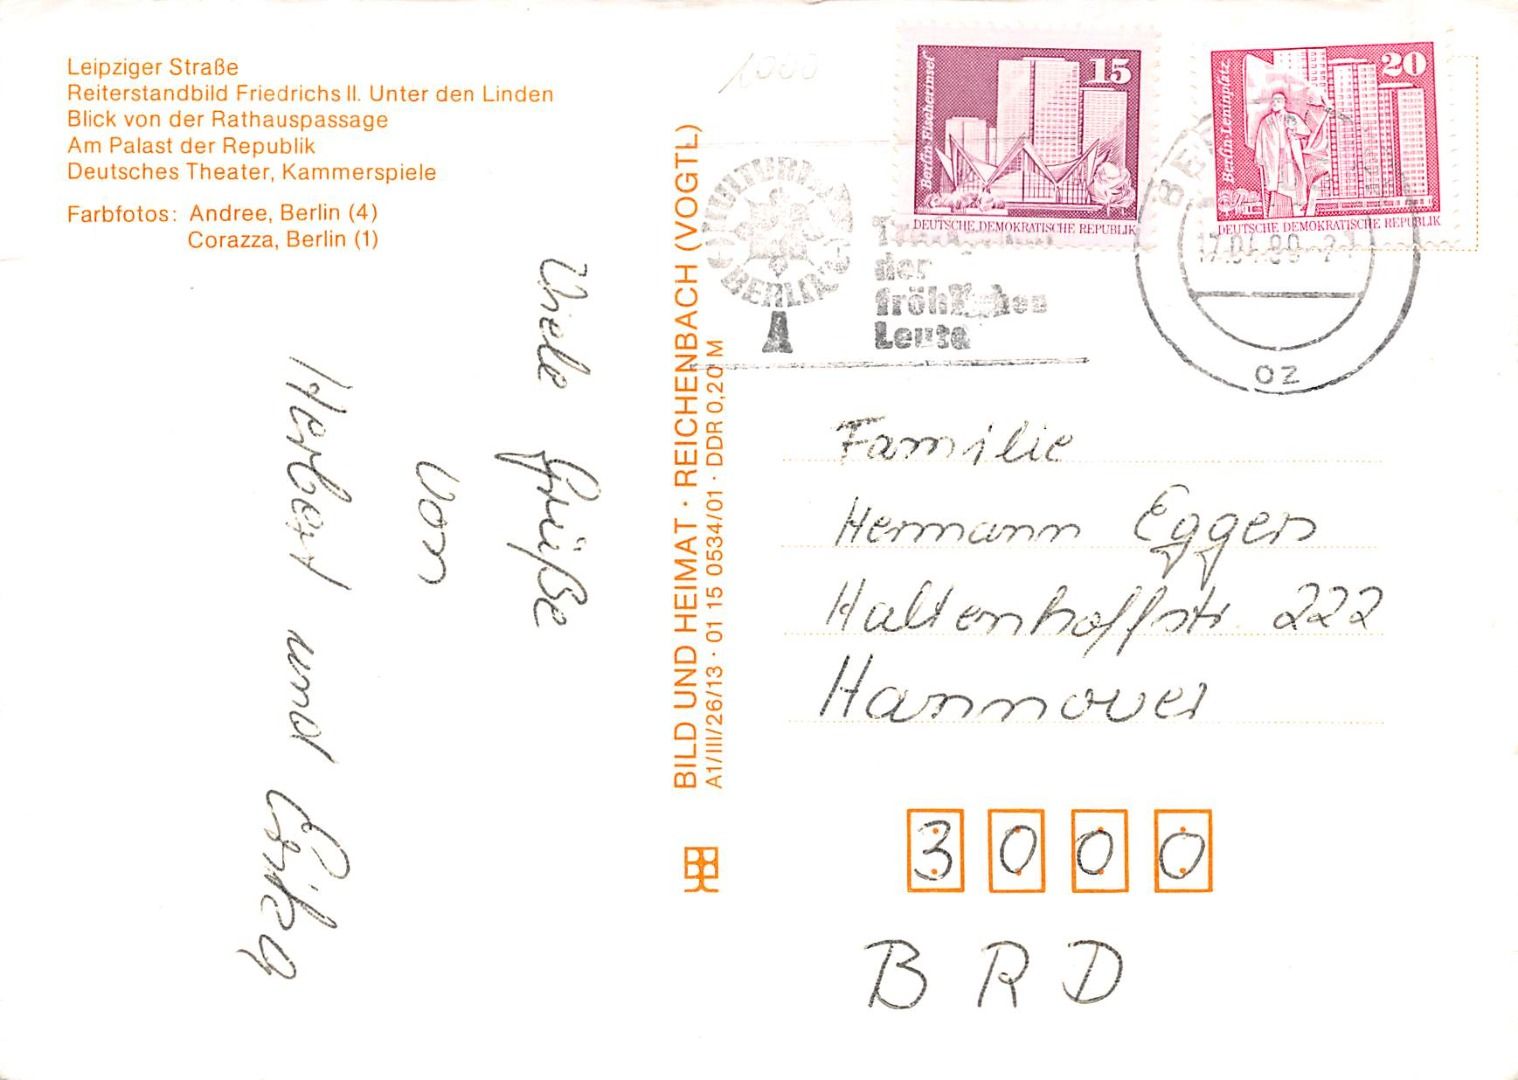 Leipziger Straße
Reiterstandbild Friedrichs II. Unter den Linden
Blick von der Rathauspassage
Am Palast der Republik
Deutsches Theater, Kammerspiele
Farbfotos: Andree, Berlin (4)
Corazza, Berlin (1)
Viele Grüße
von
Herbert und Erika
BILD UND HEIMAT · REICHENBACH (VOGTL)
A1/III/26/13 · 01 15 0534/01 · DDR 0,20 M
1000
15
Berlin-Fischerinsel
DEUTSCHE DEMOKRATISCHE REPUBLIK
20
Berlin-Leninplatz
DEUTSCHE DEMOKRATISCHE REPUBLIK
BERLIN
der
fröhlichen
Leute
oz
Familie
Hermann Eggers
Haltenhoffstr. 222
Hannover
3000
BRD